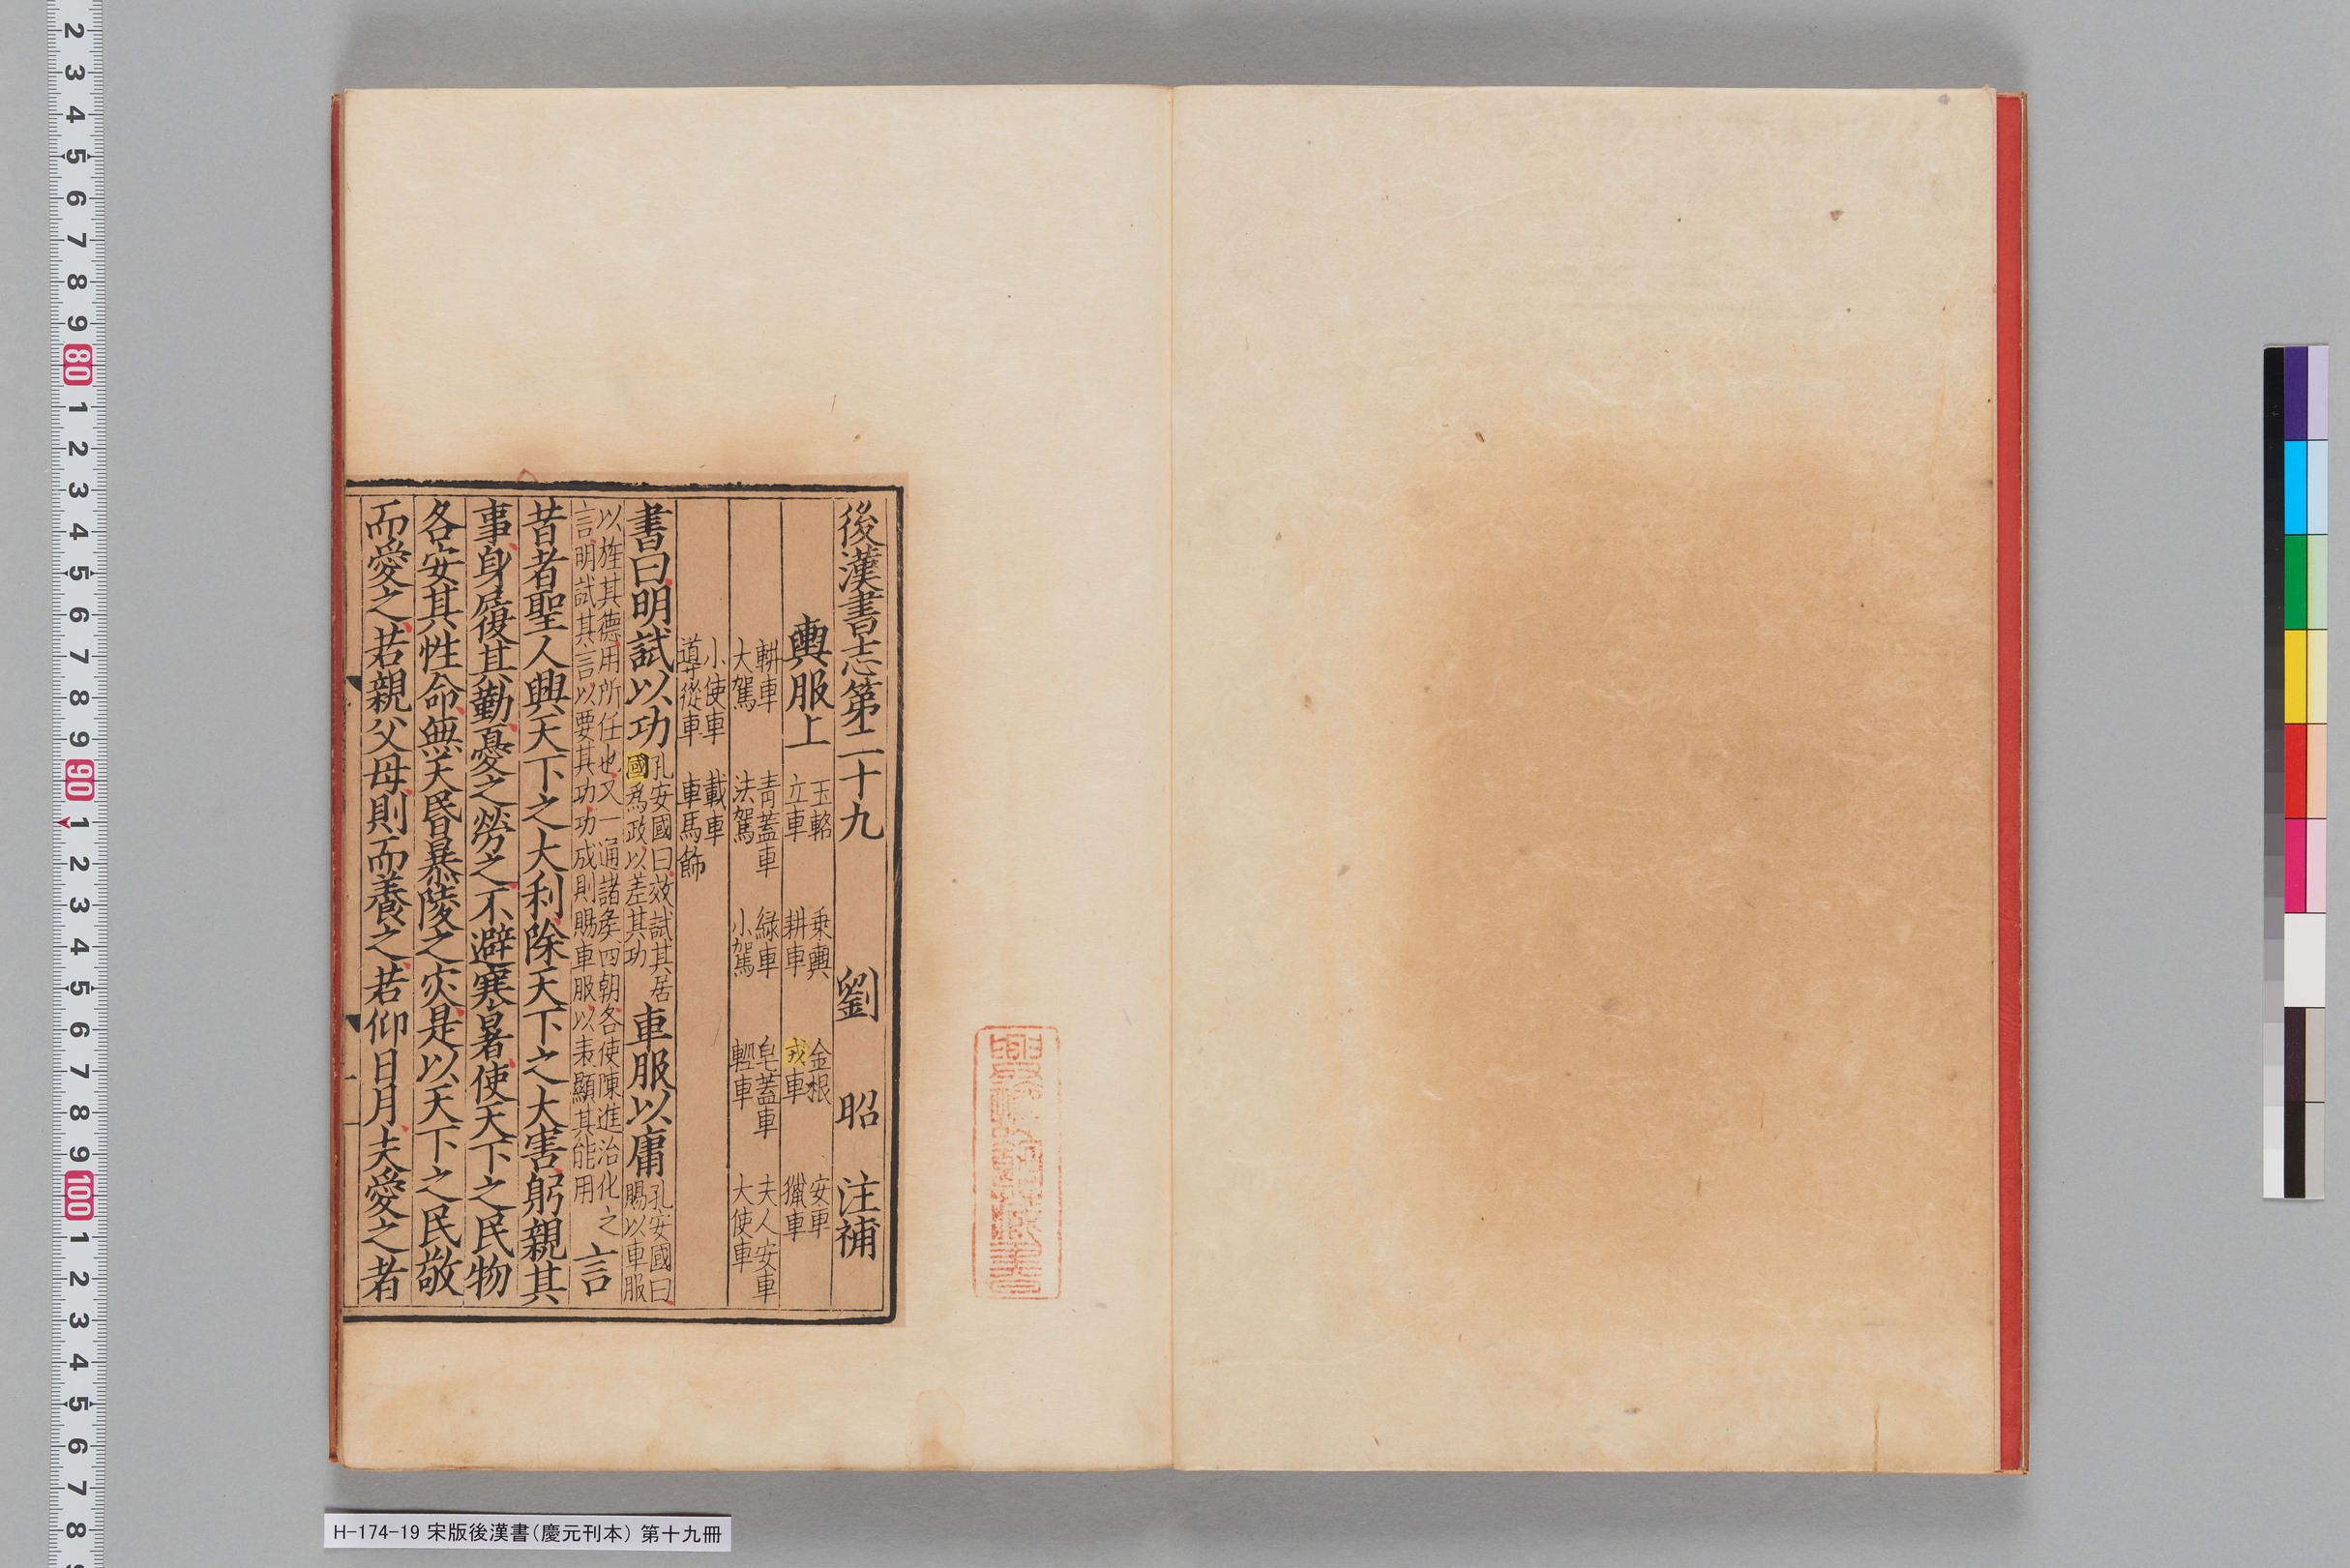 後漢書志第二十九 劉 昭 注補
輿服上 玉輅 乗輿 金根 安車
立車 耕車 戎車 獵車
軿車 青蓋車 緑車 皂蓋車 夫人安車
大駕 法駕 小駕 輕車 大使車
小使車 載車
導從車 車馬飾
書曰明試以功 孔安國曰效試其居
國爲政以差其功 車服以庸 孔安國曰
賜以車服
以旌其德用所任也又一通諸矦四朝各使陳進治化之
言明試其言以要其功功成則賜車服以表顯其能用 言
昔者聖人興天下之大利除天下之大害躬親其
事身履其勤憂之勞之不避寒暑使天下之民物
各安其性命無夭昬暴陵之灾是以天下之民敬
而愛之若親父母則而養之若仰日月夫愛之者
H-174-19 宋版後漢書(慶元刊本) 第十九冊
2 3 4 5 6 7 8 9 80 1 2 3 4 5 6 7 8 9 90 1 2 3 4 5 6 7 8 9 100 1 2 3 4 5 6 7 8